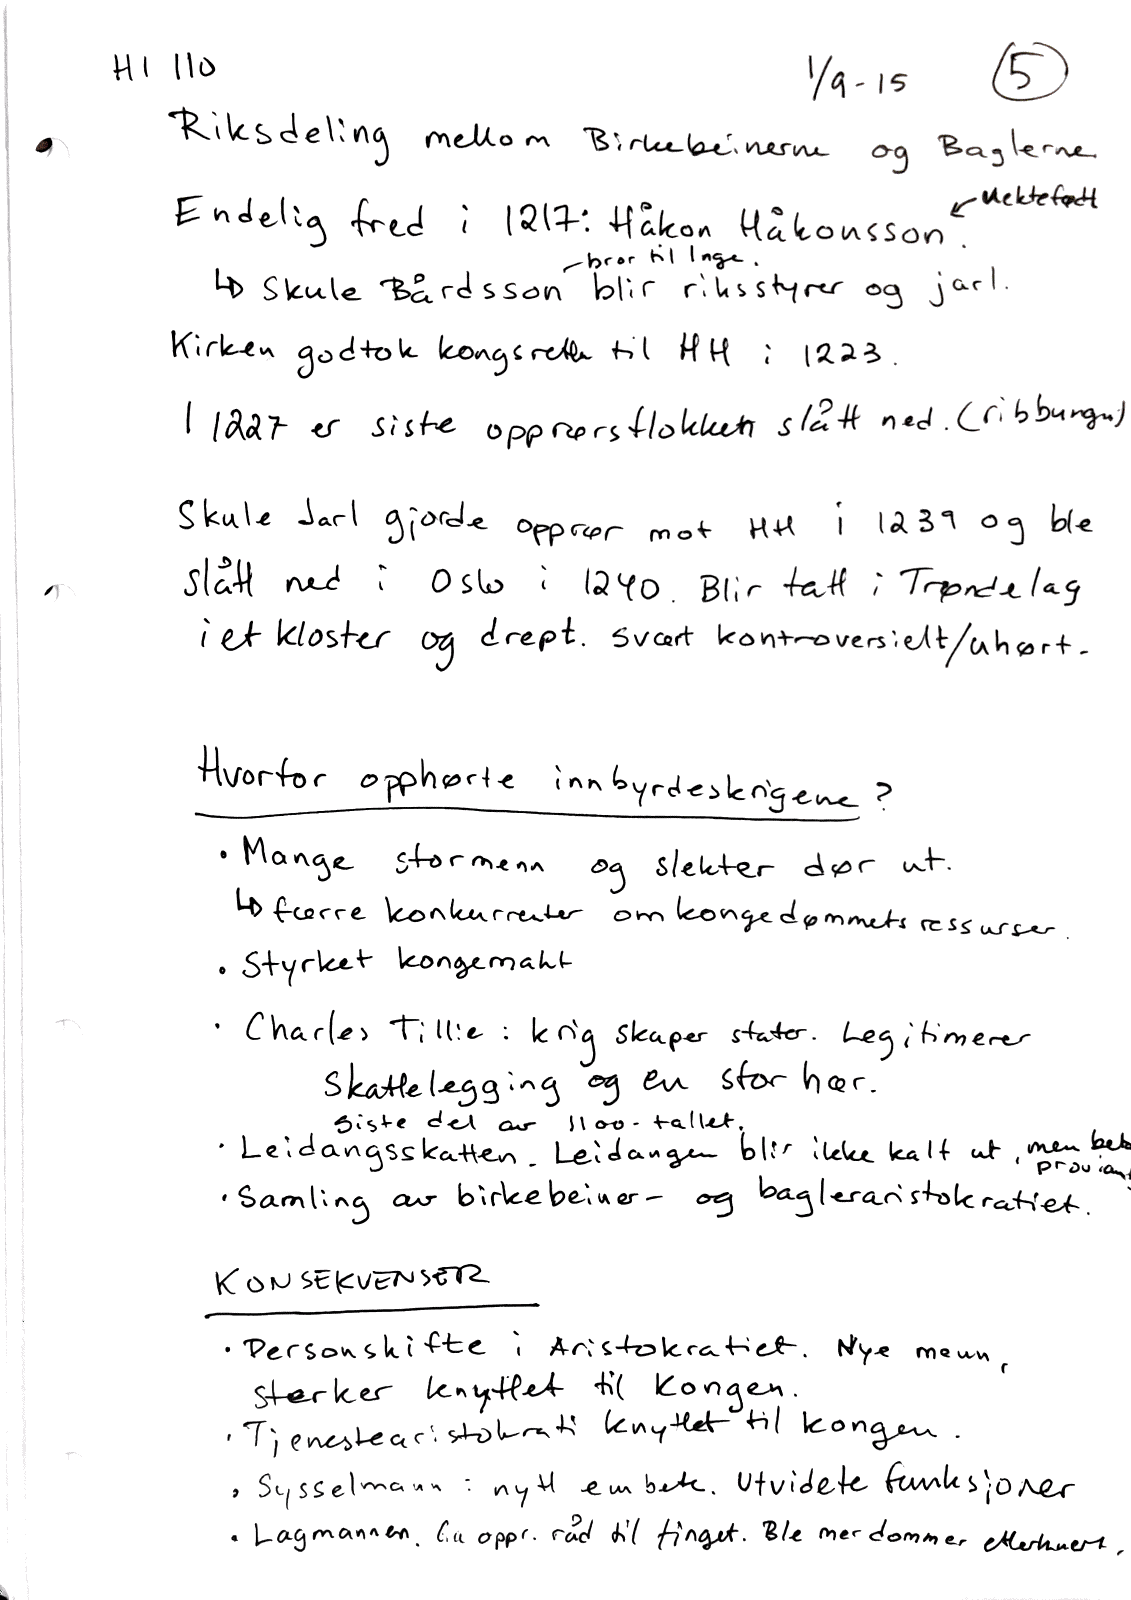 HI 110
1/9-15 5
Riksdeling mellom Birkebeinerne og Baglerne
Uektefødt
Endelig fred i 1217: Håkon Håkonsson.
bror til Inge.
↳ Skule Bårdsson blir riksstyrer og jarl.
Kirken godtok kongsretten til HH i 1223.
I 1227 er siste opprørsflokken slått ned. (ribbunger)
Skule Jarl gjorde opprør mot HH i 1239 og ble
slått ned i Oslo i 1240. Blir tatt i Trøndelag
i et kloster og drept. Svært kontroversielt/uhørt.
Hvorfor opphørte innbyrdeskrigene?
• Mange stormenn og slekter dør ut.
↳ færre konkurrenter om kongedømmets ressurser.
• Styrket kongemakt
• Charles Tillie: krig skaper stater. Legitimerer
skattelegging og en stor hær.
siste del av 1100-tallet.
• Leidangsskatten. Leidangen blir ikke kalt ut, men bet
proviant
• Samling av birkebeiner- og bagleraristokratiet.
KONSEKVENSER
• Personskifte i Aristokratiet. Nye menn,
sterker knyttet til kongen.
• Tjenestearistokrati knyttet til kongen.
• Sysselmann: nytt embete. Utvidete funksjoner
• Lagmannen. oppr. råd til tinget. Ble mer dommer etterhvert.